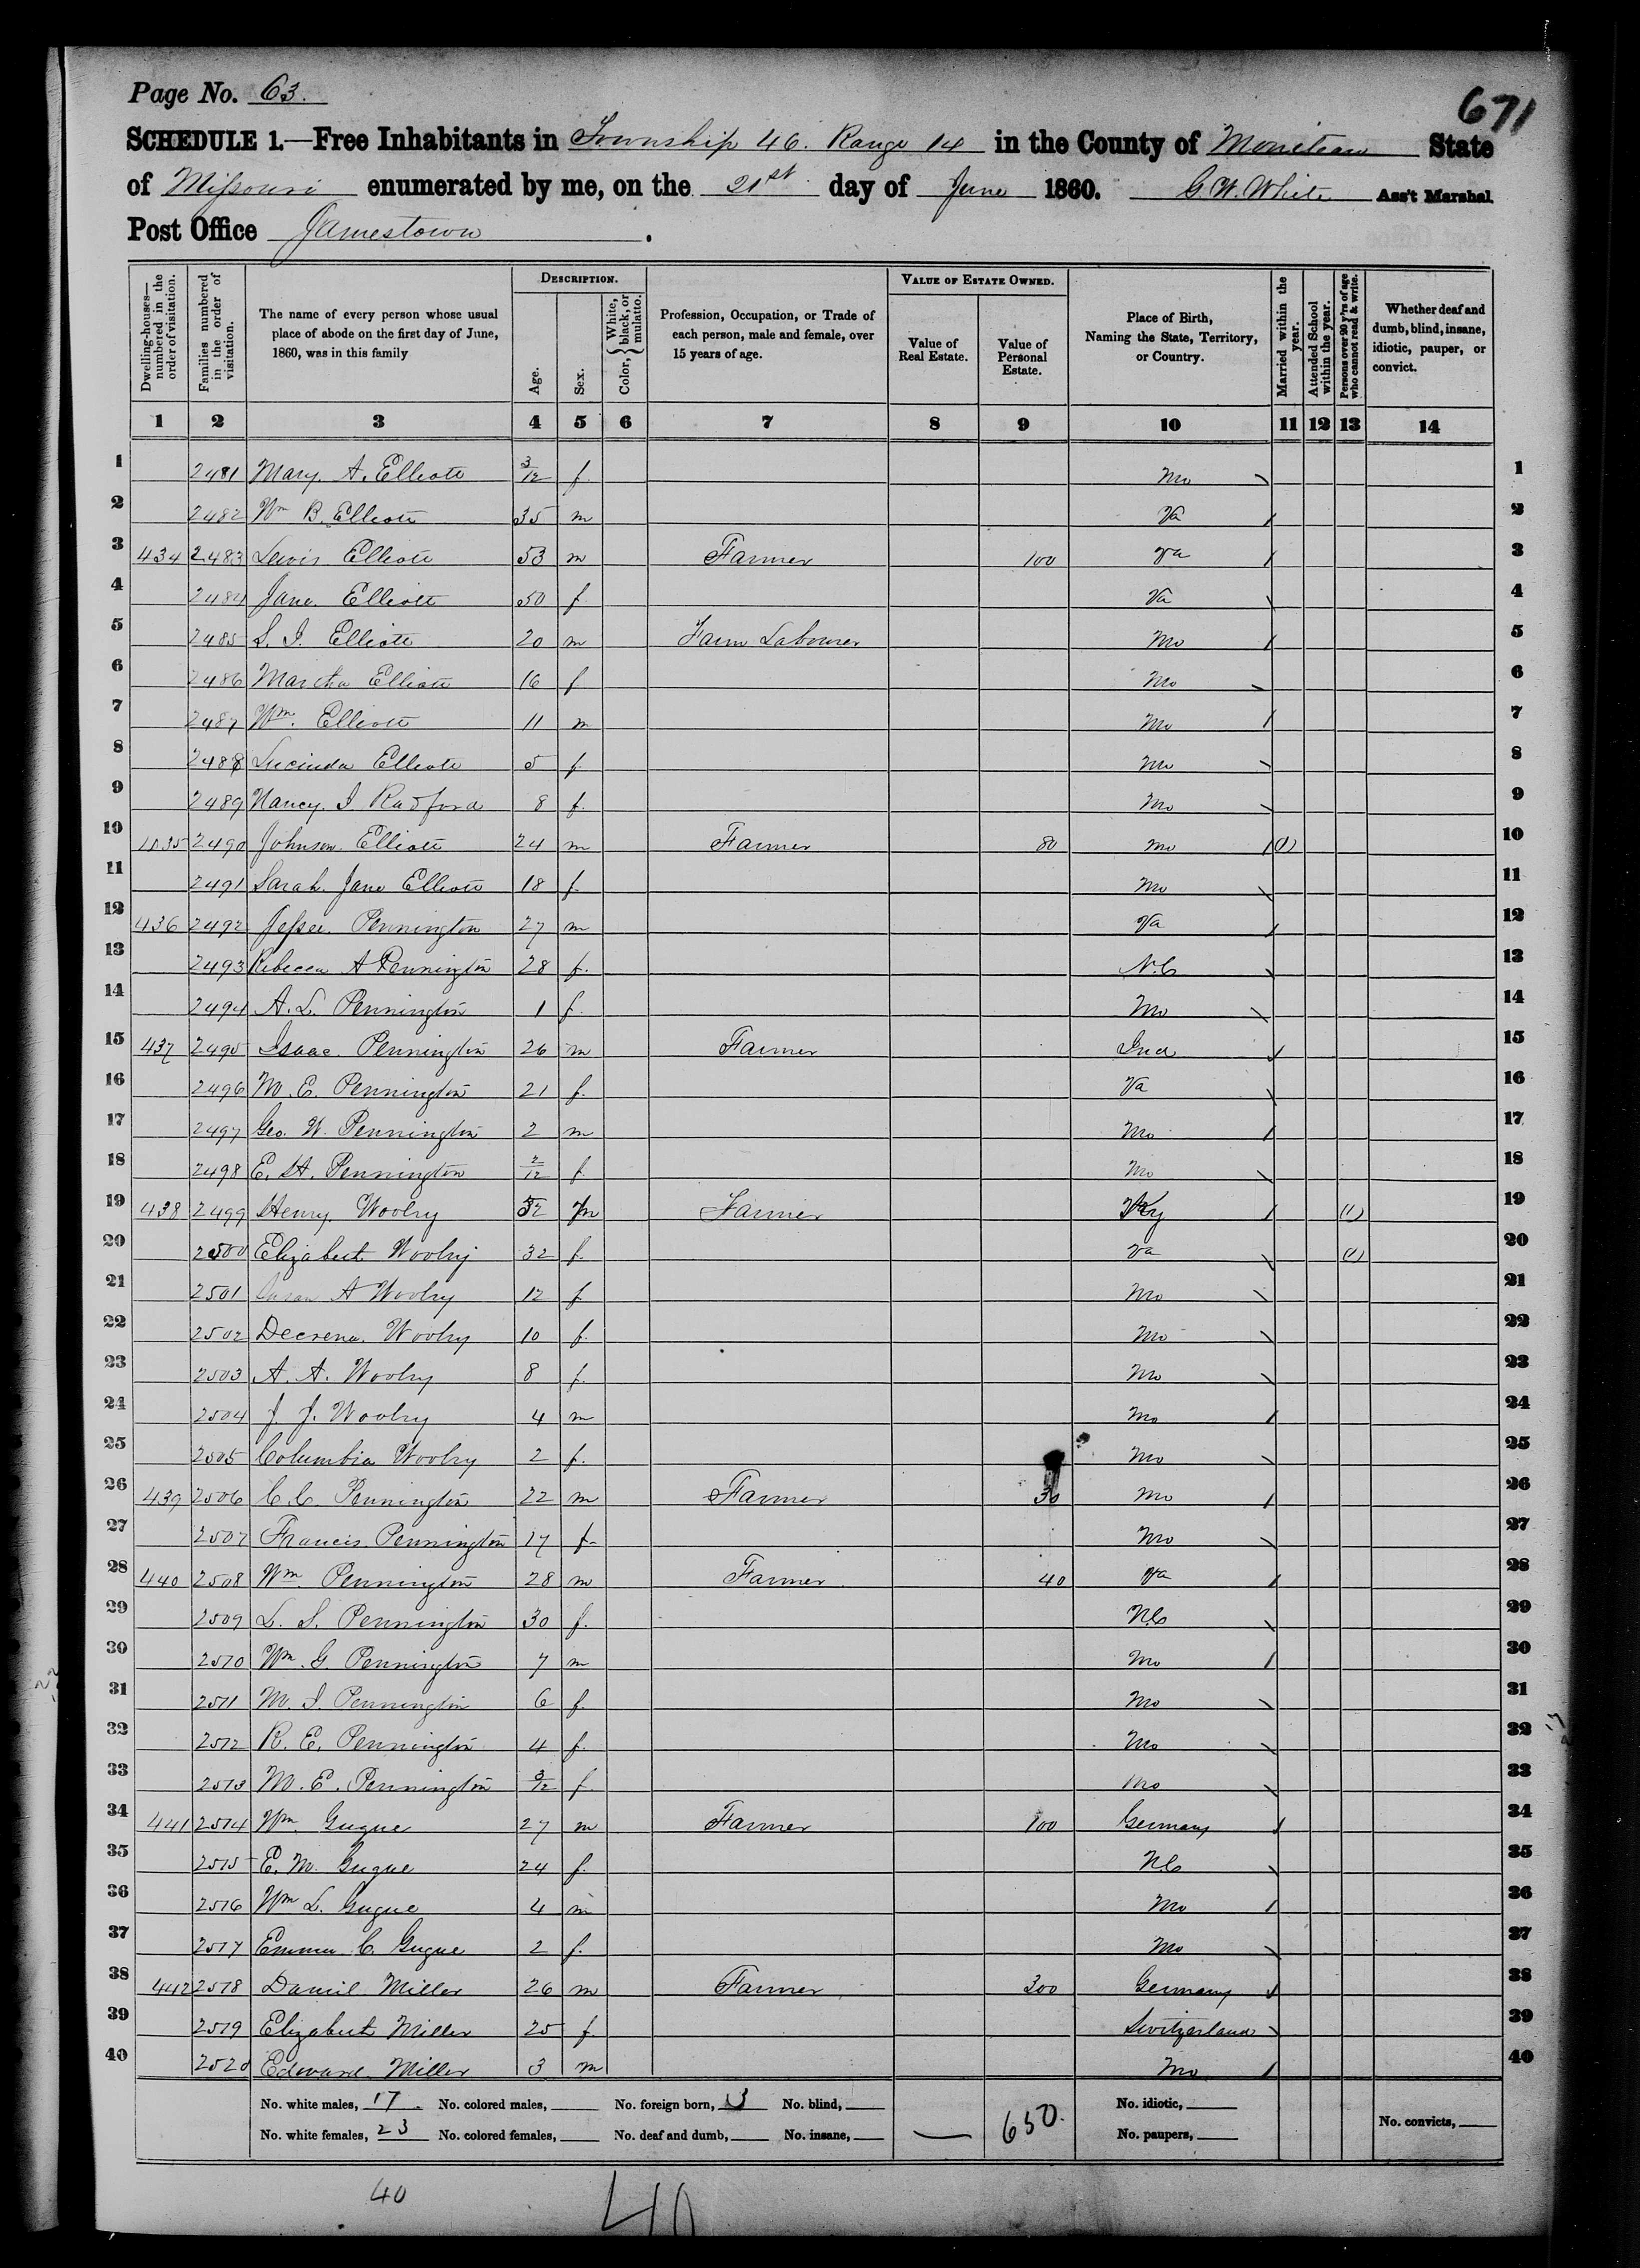 Page No. 63.
671
SCHEDULE 1.—Free Inhabitants in Township 46. Range 14 in the County of Moniteau State
of Missouri enumerated by me, on the 21st day of June 1860. G. W. White Ass't Marshal
Post Office Jamestown.
Dwelling-houses—numbered in the order of visitation.
Families numbered in the order of visitation.
The name of every person whose usual place of abode on the first day of June, 1860, was in this family
DESCRIPTION.
Age.
Sex.
Color, { White, black, or mulatto.
Profession, Occupation, or Trade of each person, male and female, over 15 years of age.
VALUE OF ESTATE OWNED.
Value of Real Estate.
Value of Personal Estate.
Place of Birth, Naming the State, Territory, or Country.
Married within the year.
Attended School within the year.
Persons over 20 y'rs of age who cannot read & write.
Whether deaf and dumb, blind, insane, idiotic, pauper, or convict.
1 2 3 4 5 6 7 8 9 10 11 12 13 14
1 2481 Mary. A. Elliott 3/12 f. Mo 1
2 2482 Wm B. Elliott 35 m Va 2
3 434 2483 Lewis Elliott 53 m Farmer 100 Va 3
4 2484 Jane. Elliott 50 f Va 4
5 2485 S. I. Elliott 20 m Farm Labourer Mo 5
6 2486 Martha Elliott 16 f Mo 6
7 2487 Wm. Elliott 11 m Mo 7
8 2488 Lucinda Elliott 5 f. Mo 8
9 2489 Nancy. I Radford 8 f. Mo 9
10 435 2490 Johnson. Elliott 24 m Farmer 80 Mo (1) 10
11 2491 Sarah. Jane Elliott 18 f. Mo 11
12 436 2492 Jessee. Pennington 27 m Va 12
13 2493 Rebecca A Pennington 28 f. N.C 13
14 2494 A. L. Pennington 1 f. Mo 14
15 437 2495 Isaac. Pennington 26 m Farmer Ind 15
16 2496 M. E. Pennington 21 f. Va 16
17 2497 Geo. W. Pennington 2 m Mo 17
18 2498 E. H. Pennington 2/12 f. Mo 18
19 438 2499 Henry. Woolry 32 m Farmer Ky (1) 19
20 2500 Elizabeth Woolry 32 f. Va (1) 20
21 2501 Susan A Woolry 12 f Mo 21
22 2502 Decrena. Woolry 10 f. Mo 22
23 2503 A. A. Woolry 8 f. Mo 23
24 2504 J. J. Woolry 4 m Mo 24
25 2505 Columbia Woolry 2 f. Mo 25
26 439 2506 C. C. Pennington 22 m Farmer 30 Mo 26
27 2507 Francis. Pennington 17 f. Mo 27
28 440 2508 Wm. Pennington 28 m Farmer 40 Va 28
29 2509 L. S. Pennington 30 f. N.C 29
30 2510 Wm. G. Pennington 7 m Mo 30
31 2511 M. I. Pennington 6 f. Mo 31
32 2512 R. E. Pennington 4 f. Mo 32
33 2513 M. E. Pennington 3/12 f. Mo 33
34 441 2514 Wm. Gugue 27 m Farmer 100 Germany 34
35 2515 E. M. Gugue 24 f. N.C 35
36 2516 Wm L. Gugue 4 m Mo 36
37 2517 Emma C. Gugue 2 f. Mo 37
38 442 2518 Daniel Miller 26 m Farmer 300 Germany 38
39 2519 Elizabeth Miller 25 f. Switzerland 39
40 2520 Edward Miller 3 m Mo 40
No. white males, 17. No. colored males, No. foreign born, 3 No. blind, No. idiotic,
No. white females, 23 No. colored females, No. deaf and dumb, No. insane, — 650. No. paupers, No. convicts,
40
40